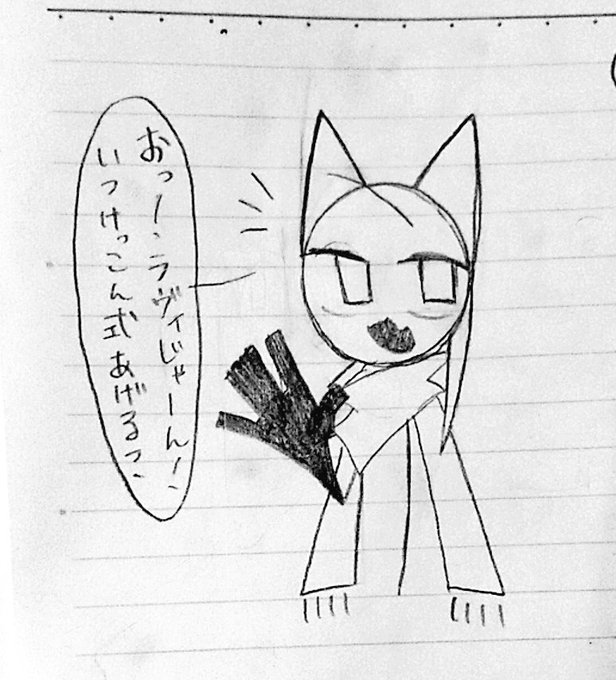 おっー、ラヴィじゃーん！、
いつけっこん式あげるっ、